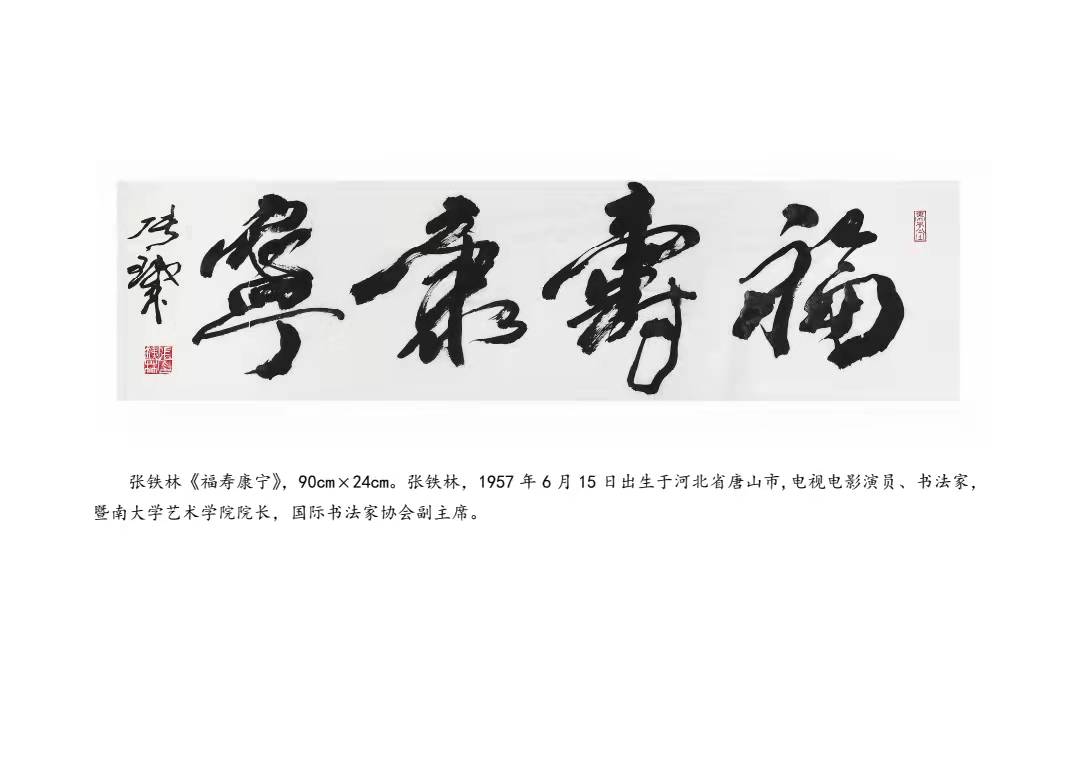 福壽康寧
张铁林《福寿康宁》，90cm×24cm。张铁林，1957 年 6 月 15 日出生于河北省唐山市，电视电影演员、书法家，
暨南大学艺术学院院长，国际书法家协会副主席。